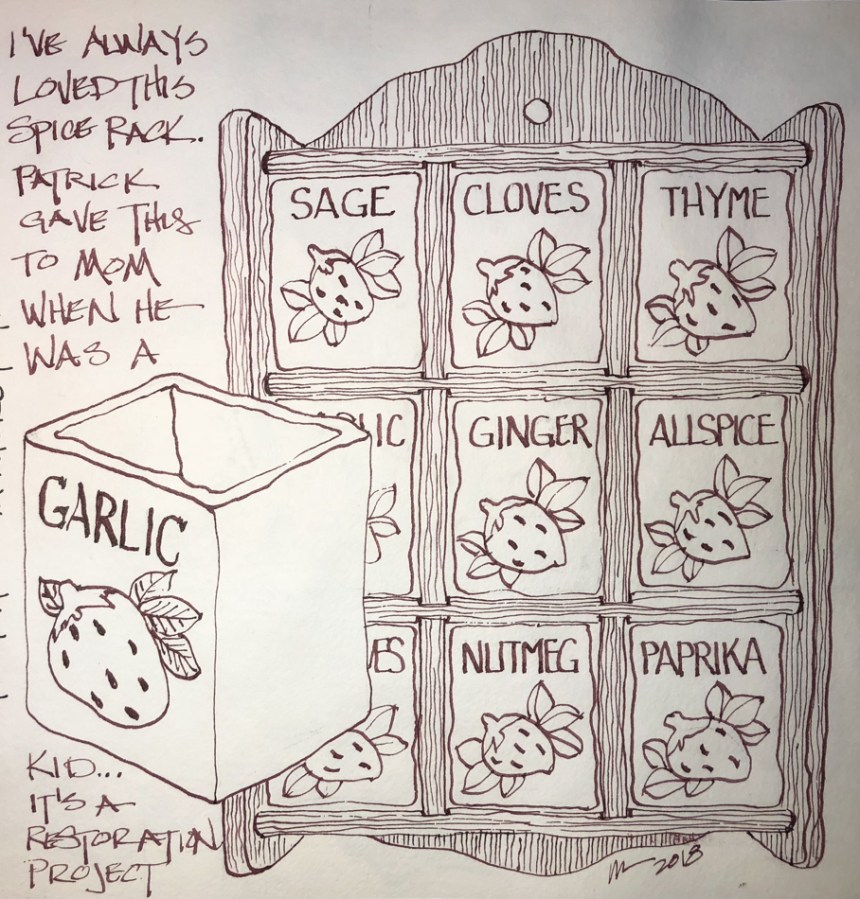 I'VE ALWAYS
LOVED THIS
SPICE RACK.
PATRICK
GAVE THIS
TO MOM
WHEN HE
WAS A
KID...
IT'S A
RESTORATION
PROJECT
SAGE CLOVES THYME
GARLIC
LIC GINGER ALLSPICE
VES NUTMEG PAPRIKA
2018